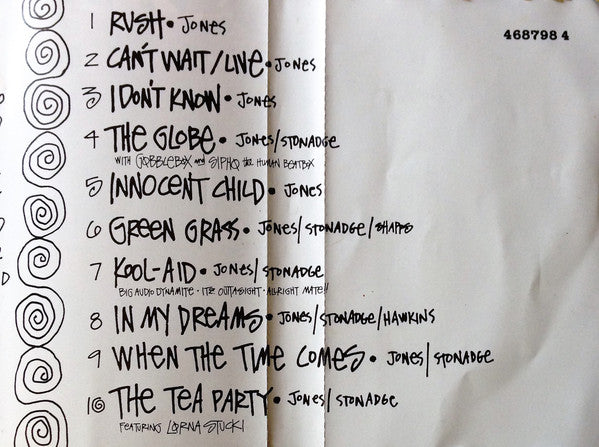 468798 4
1 RUSH • JONES
2 CAN'T WAIT/LIVE • JONES
3 I DON'T KNOW • JONES
4 THE GLOBE • JONES/STONADGE
WITH GOBBLEBOX AND SIPHO THE HUMAN BEATBOX
5 INNOCENT CHILD • JONES
6 GREEN GRASS • JONES/STONADGE/SHAPPS
7 KOOL-AID • JONES/STONADGE
BIG AUDIO DYNAMITE • ITZ OUTASIGHT • ALLRIGHT MATE!!
8 IN MY DREAMS • JONES/STONADGE/HAWKINS
9 WHEN THE TIME COMES • JONES/STONADGE
10 THE TEA PARTY • JONES/STONADGE
FEATURING LORNA STUCKI